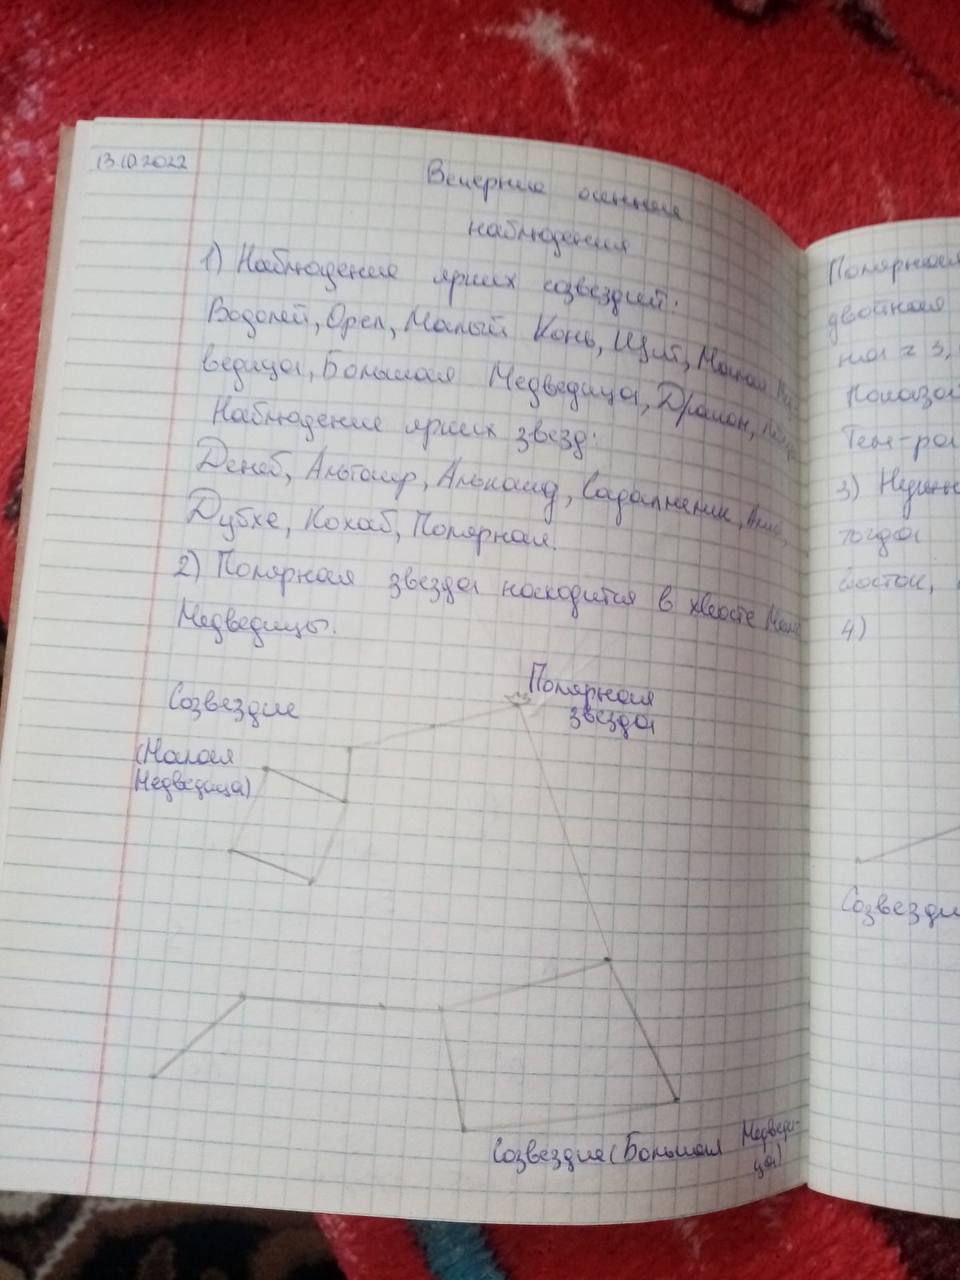 13.10.2022
Вечерние осенние
наблюдения
1) Наблюдение ярких созвездий:
Водолей, Орел, Малый Конь, Щит, Малая Ме-
ведица, Большая Медведица, Дракон,
Наблюдение ярких звезд:
Денеб, Альтаир, Алькаид,
Дубхе, Кохаб, Полярная.
2) Полярная звезда находится в хвосте Мал
Медведицы.
Полярная
звезда
Созвездие
(Малая
Медведица)
Созвездие (Большая Медведи-
ца)
Полярная
двойная
на ≈ 3,
3)
тогда
восток,
4)
Созвезди